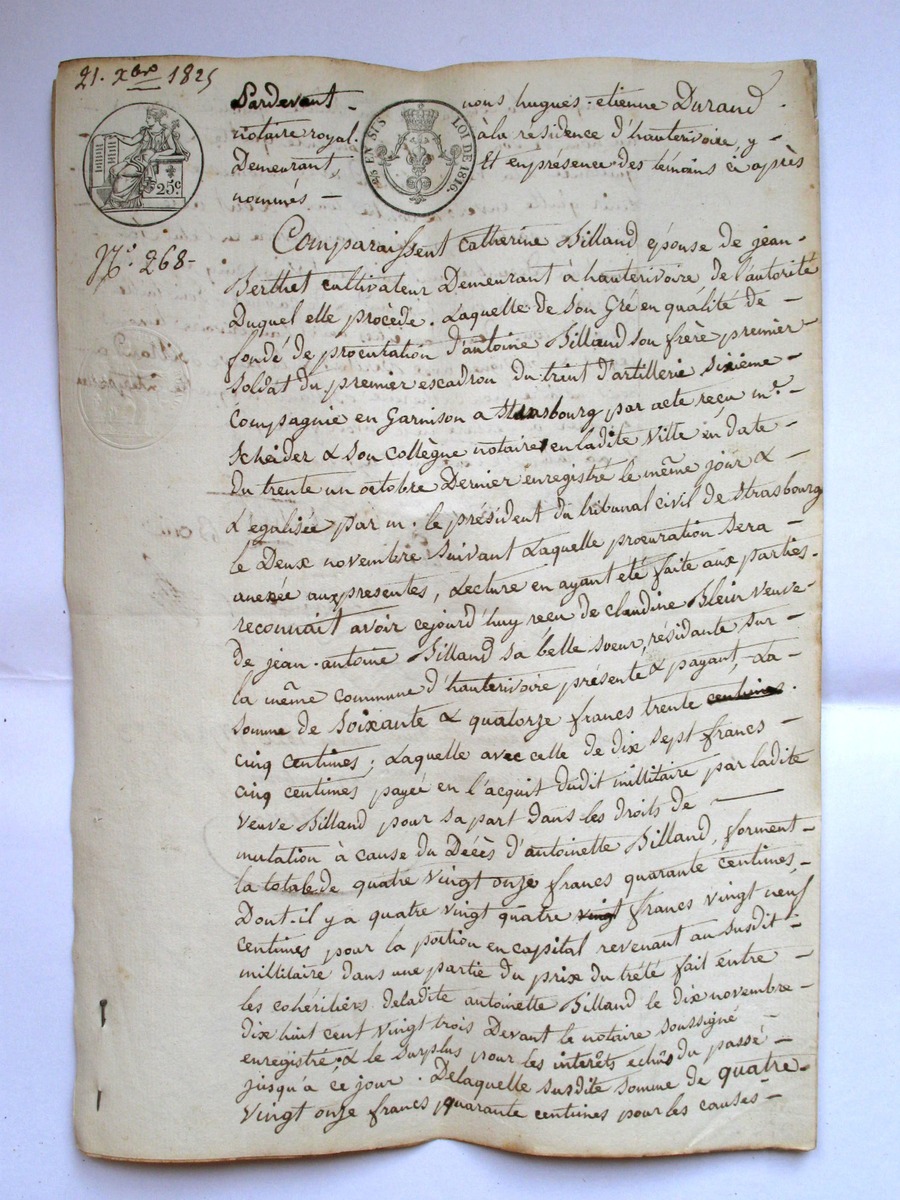 21. Xbre 1825
Pardevant nous hugues-etienne Durand
notaire royal à la résidence d'hauterivoire, y
Demeurant, Et en présence des témoins ci après
nommés
25c.
EN SUS
LOI DE 1816.
N° 268
Comparaissent Catherine Billand épouse de jean
Berthet cultivateur Demeurant à hauterivoire de l'autorité
Duquel elle procède. Laquelle de son Gré en qualité de
fondé de procuration d'antoine Billand son frère premier
soldat du premier escadron du trint d'artillerie sixième
Compagnie en Garnison a Strasbourg par acte reçu me.
Scheider & son collègue notaires en ladite Ville en date
du trente un octobre Dernier enregistré le même jour &
Légalisée par m. le président du tribunal civil de Strasbourg
le Deux novembre suivant Laquelle procuration sera
anexée aux presentes, Lecture en ayant été faite aux parties.
reconnait avoir cejourd'huy reçu de claudine Blein veuve
de jean-antoine Billand sa belle soeur, résidante sur
la même commune d'hauterivoire présente & payant, La
somme de Soixante & quatorze francs trente centimes
cinq centimes; Laquelle avec celle de dix sept francs
cinq centimes payée en l'acquit dudit millitaire par ladite
veuve Billand pour sa part dans les droits de
mutation à cause du Décès d'antoinette Billand, forment
la totale de quatre vingt onze francs quarante centimes
Dont-il y a quatre vingt quatre vingt francs vingt neuf
centimes pour la portion en capital revenant au susdit
militaire dans une partie du prix du trété fait entre
les cohéritiers deladite antoinette Billand le dix novembre
dix huit cent vingt trois Devant le notaire soussigné
enregistré; & le surplus pour les intérêts echus du passé
jusqu'à ce jour. Delaquelle susdite somme de quatre
vingt onze francs quarante centimes pour les causes